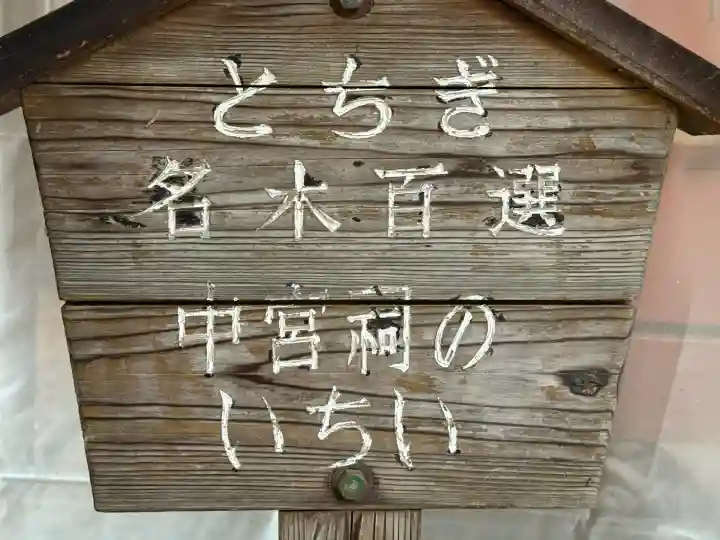 とちぎ
名木百選
中宮祠の
いちい